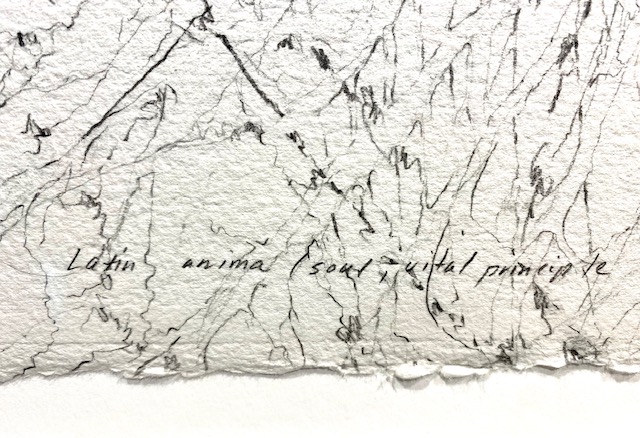 Latin anima (soul; vital principle